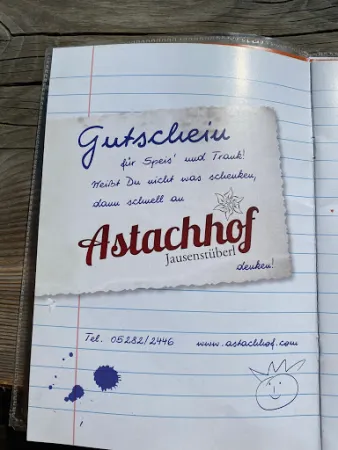 Gutschein
für Speis' und Trank!
Weißt Du nicht was schenken,
dann schnell an
Astachhof
Jausenstüberl
denken!
Tel. 05282/2446 www.astachhof.com